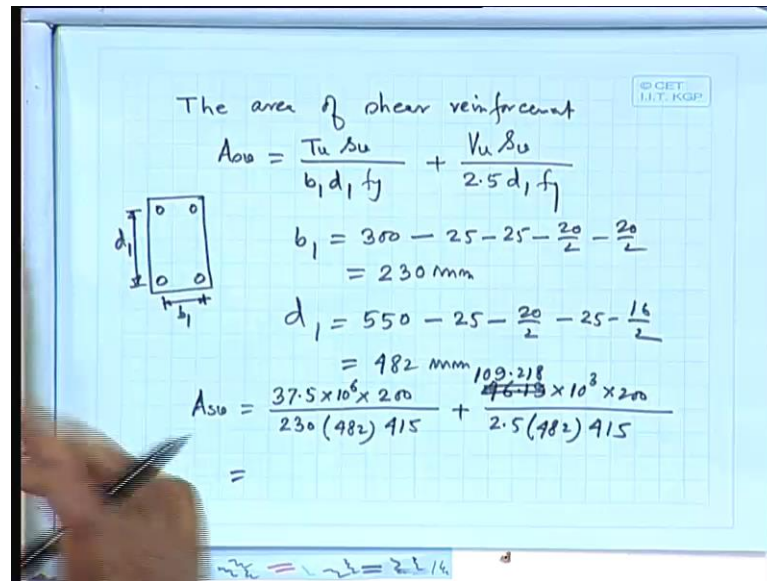 © CET
I.I.T. KGP
The area of shear reinforcement
Asv = Tu Sv / b1 d1 fy + Vu Sv / 2.5 d1 fy
d1
b1
b1 = 300 - 25 - 25 - 20/2 - 20/2
= 230 mm
d1 = 550 - 25 - 20/2 - 25 - 16/2
= 482 mm
Asv = 37.5 × 10^6 × 200 / 230 (482) 415 + 109.218 × 10^3 × 200 / 2.5 (482) 415
=